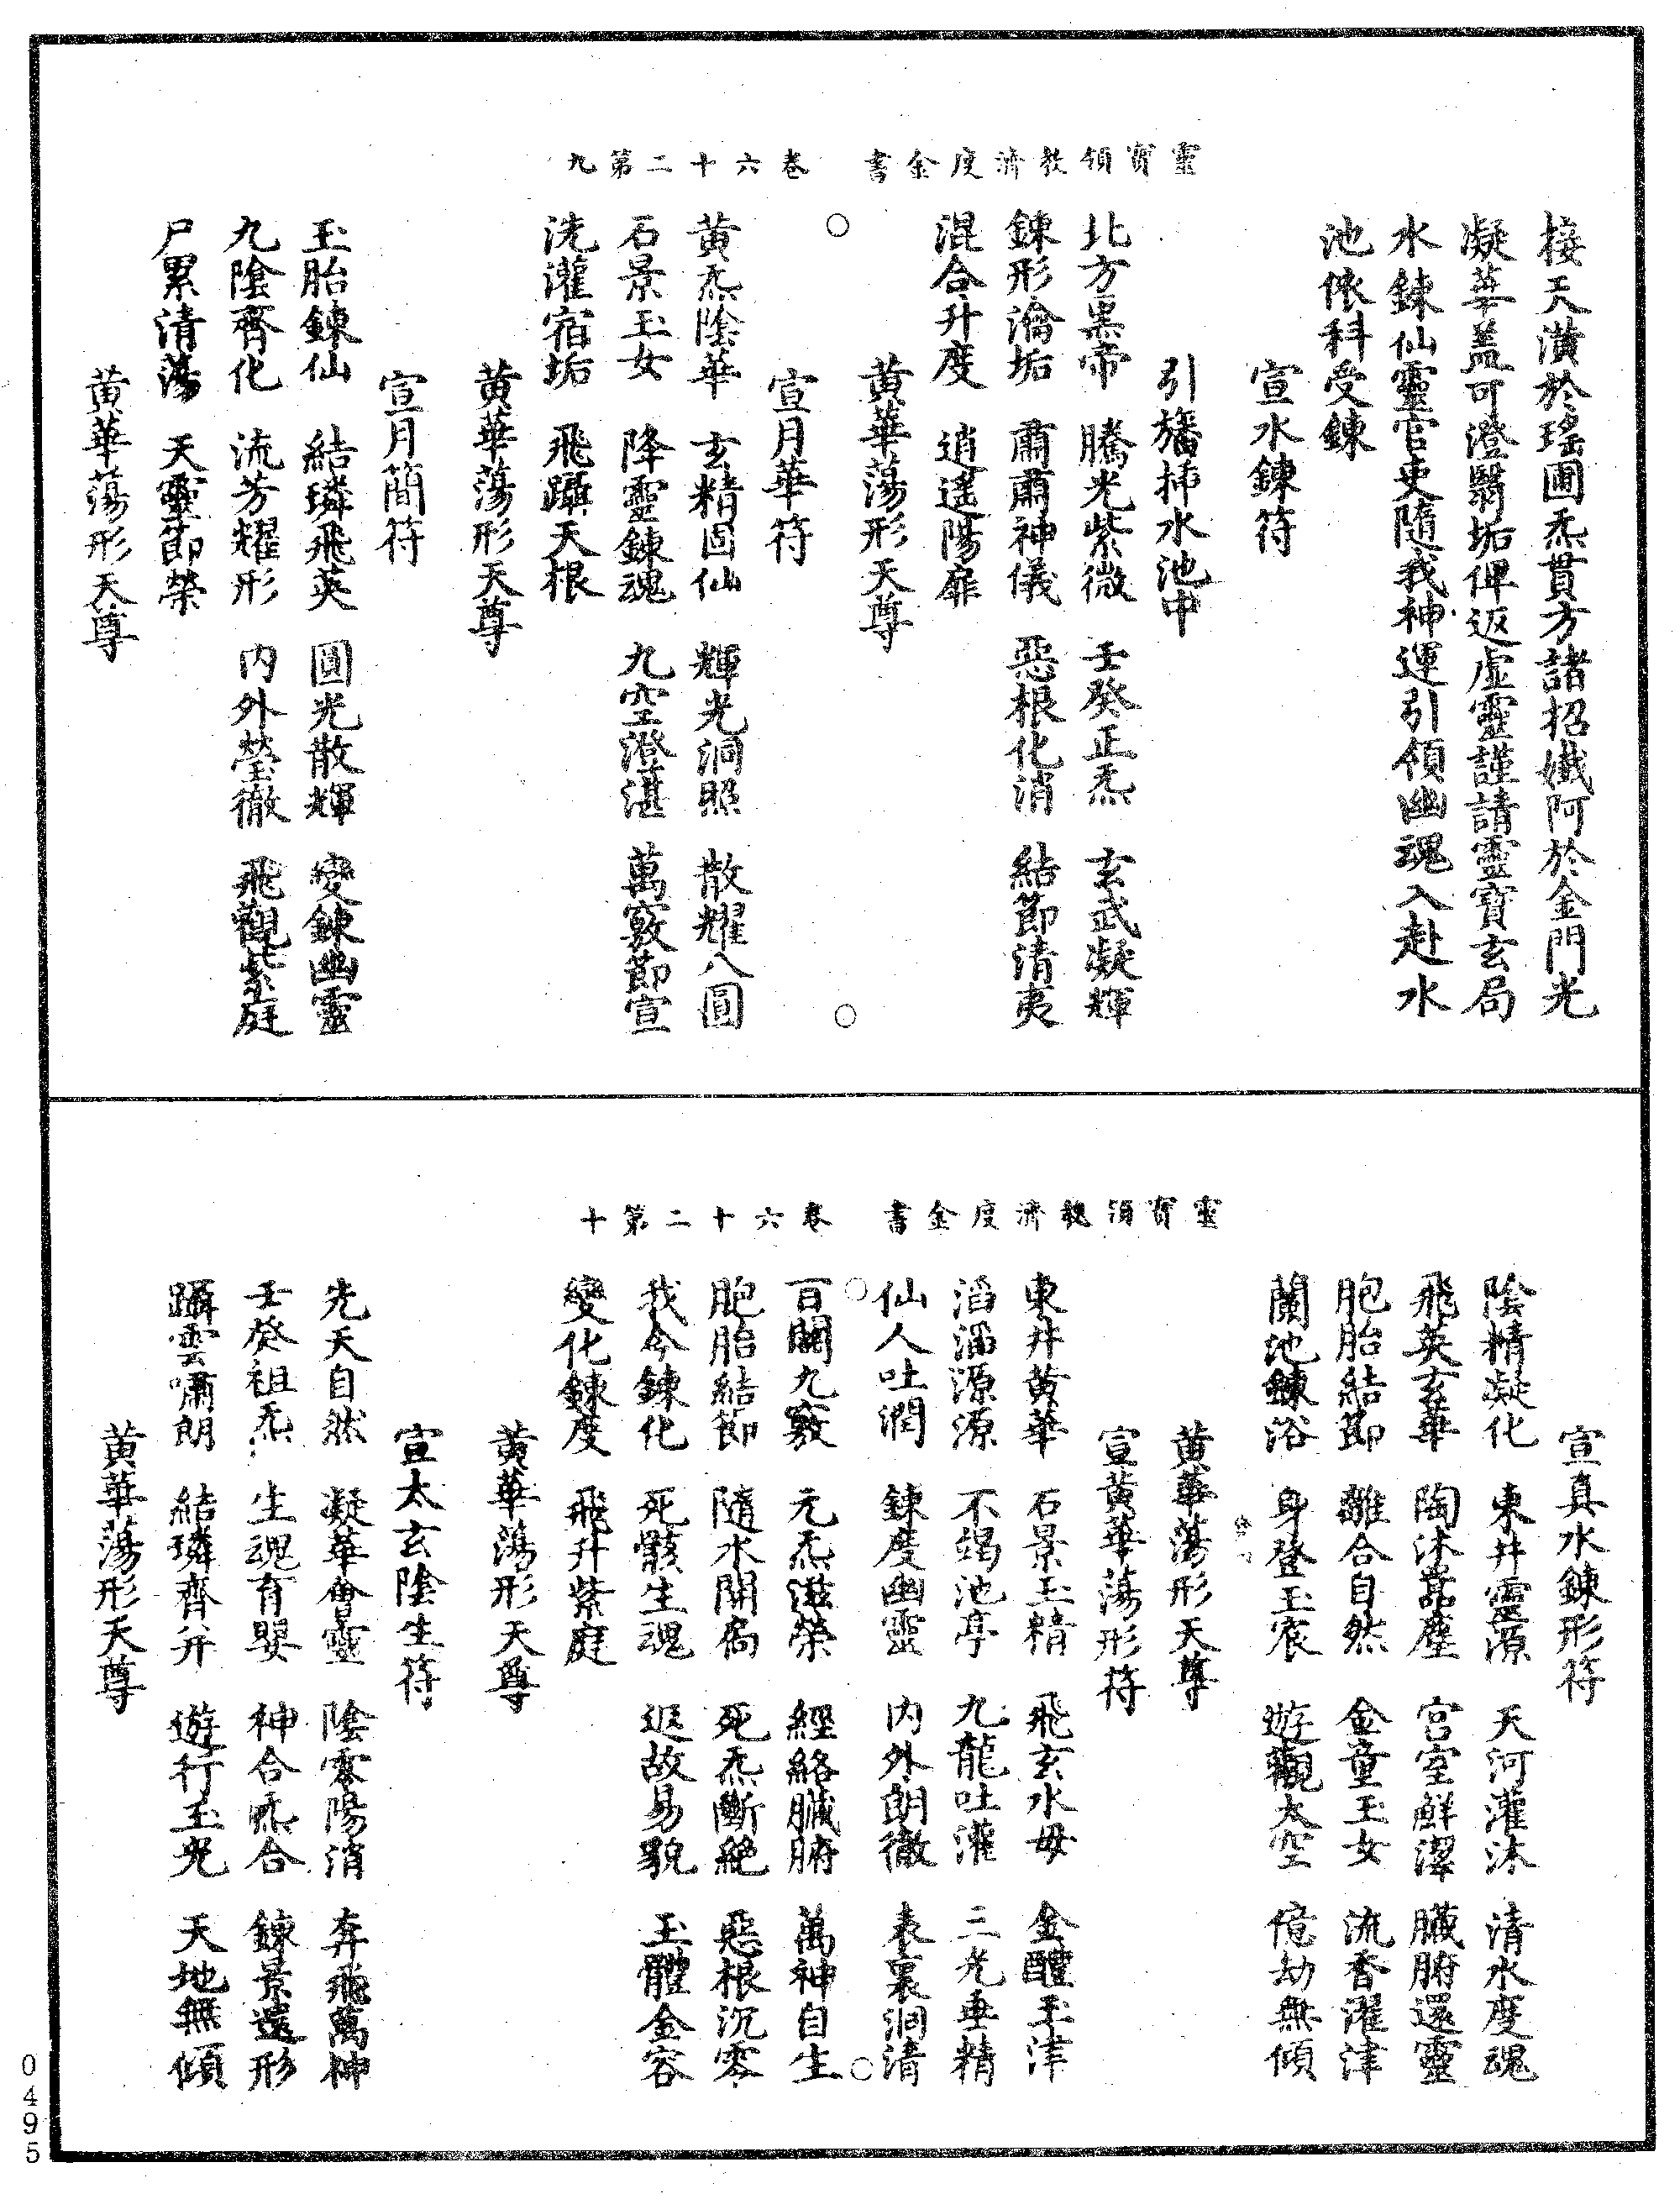 靈寶領教濟度金書　卷六十二第九
接天潢於瑤圃炁貫方諸招孅阿於金門光
凝華蓋可澄翳垢俾返虛靈謹請靈寶玄局
水鍊仙靈官吏隨我神運引領幽魂入赴水
池依科受鍊
宣水鍊符
引旛挿水池中
北方黑帝　騰光紫微　壬癸正炁　玄武凝輝
鍊形瀹垢　肅肅神儀　惡根化消　結節清夷
混合升度　逍遙陽扉
黃華蕩形天尊
宣月華符
黃炁陰華　玄精固仙　輝光洞照　散耀八圓
石景玉女　降靈鍊魂　九空澄湛　萬竅節宣
洗灌宿垢　飛躡天根
黃華蕩形天尊
宣月簡符
玉胎鍊仙　結璘飛英　圓光散輝　變鍊幽靈
九陰齊化　流芳耀形　內外瑩徹　飛觀紫庭
尸累清蕩　天靈節榮
黃華蕩形天尊
靈寶領教濟度金書　卷六十二第十
宣真水鍊形符
陰精凝化　東井靈源　天河灌沐　清水度魂
飛英玄華　陶沐囂塵　宮室鮮潔　臟腑還靈
胞胎結節　離合自然　金童玉女　流香濯津
蘭池鍊浴　身登玉宸　遊觀太空　億劫無傾
黃華蕩形天尊
宣黃華蕩形符
東井黃華　石景玉精　飛玄水母　金醴玉津
滔滔源源　不竭池亭　九龍吐灌　三光垂精
仙人吐潤　鍊度幽靈　內外朗徹　表裏洞清
百關九竅　元炁滋榮　經絡臟腑　萬神自生
胞胎結節　隨水開扃　死炁斷絕　惡根沉零
我今鍊化　死骸生魂　返故易貌　玉體金容
變化鍊度　飛升紫庭
黃華蕩形天尊
宣太玄陰生符
先天自然　凝華會靈　陰零陽消　奔飛萬神
壬癸祖炁　生魂育嬰　神合炁合　鍊景還形
躡雲嘯朗　結璘齊并　遊行玉光　天地無傾
黃華蕩形天尊
0495